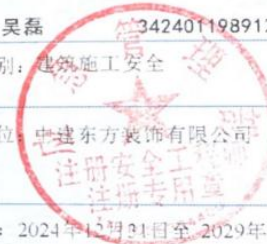 吴磊 34240119891
别：建筑施工安全
位：中建东方装饰有限公司
注册安全工程师
注册专用章
：2024年12月31日至 2029年